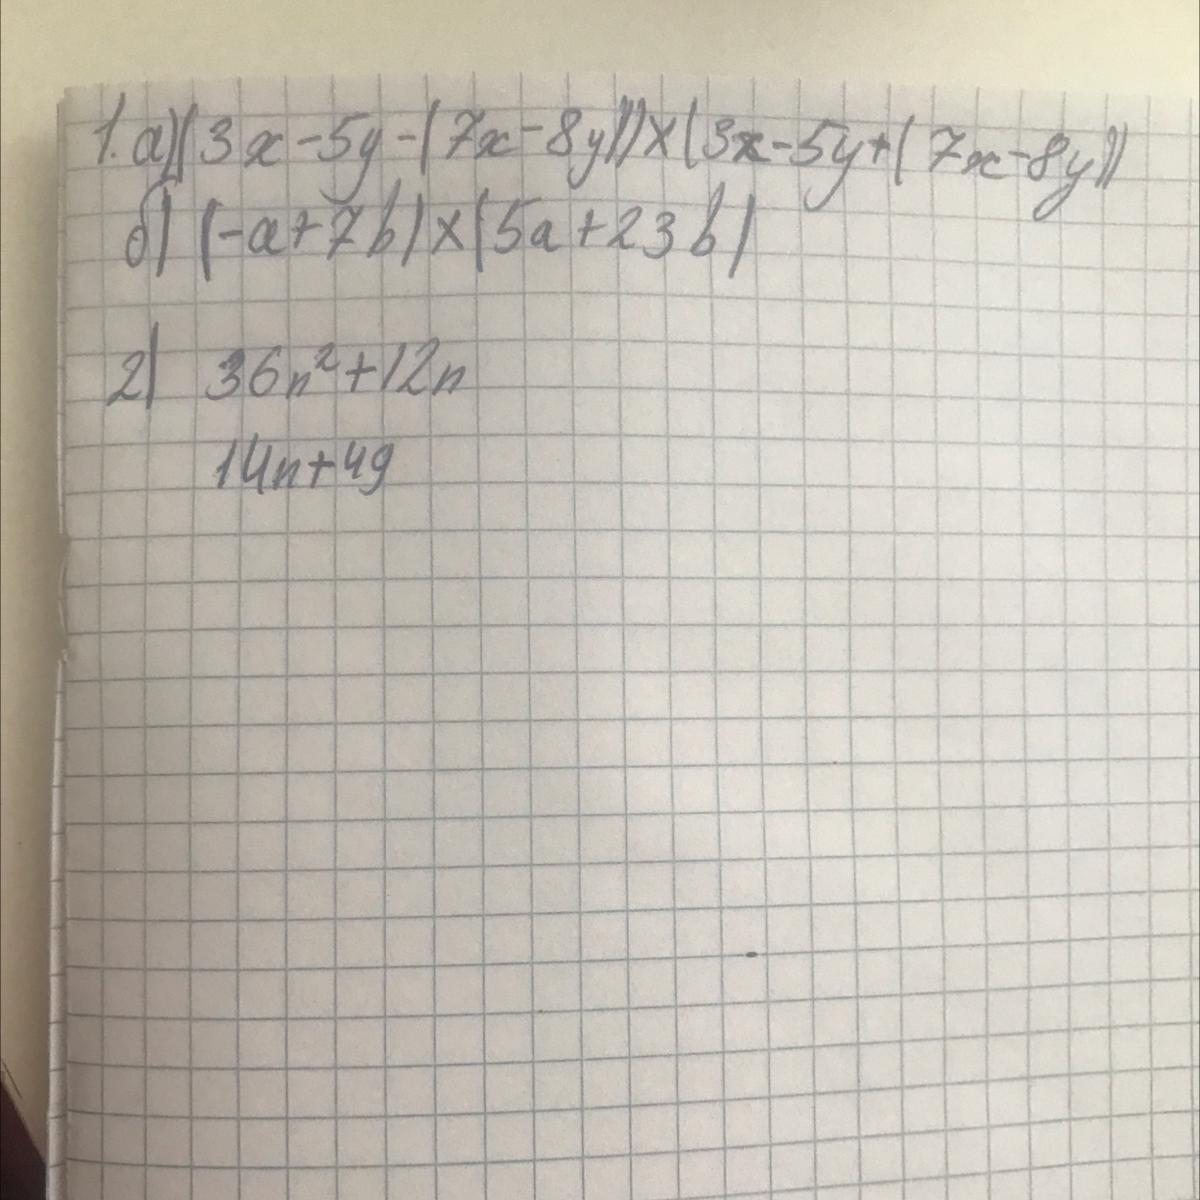 1. а) (3x-5y-(7x-8y))×(3x-5y+(7x-8y))
б) (-a+7b)×(5a+23b)
2) 36n²+12n
14n+49